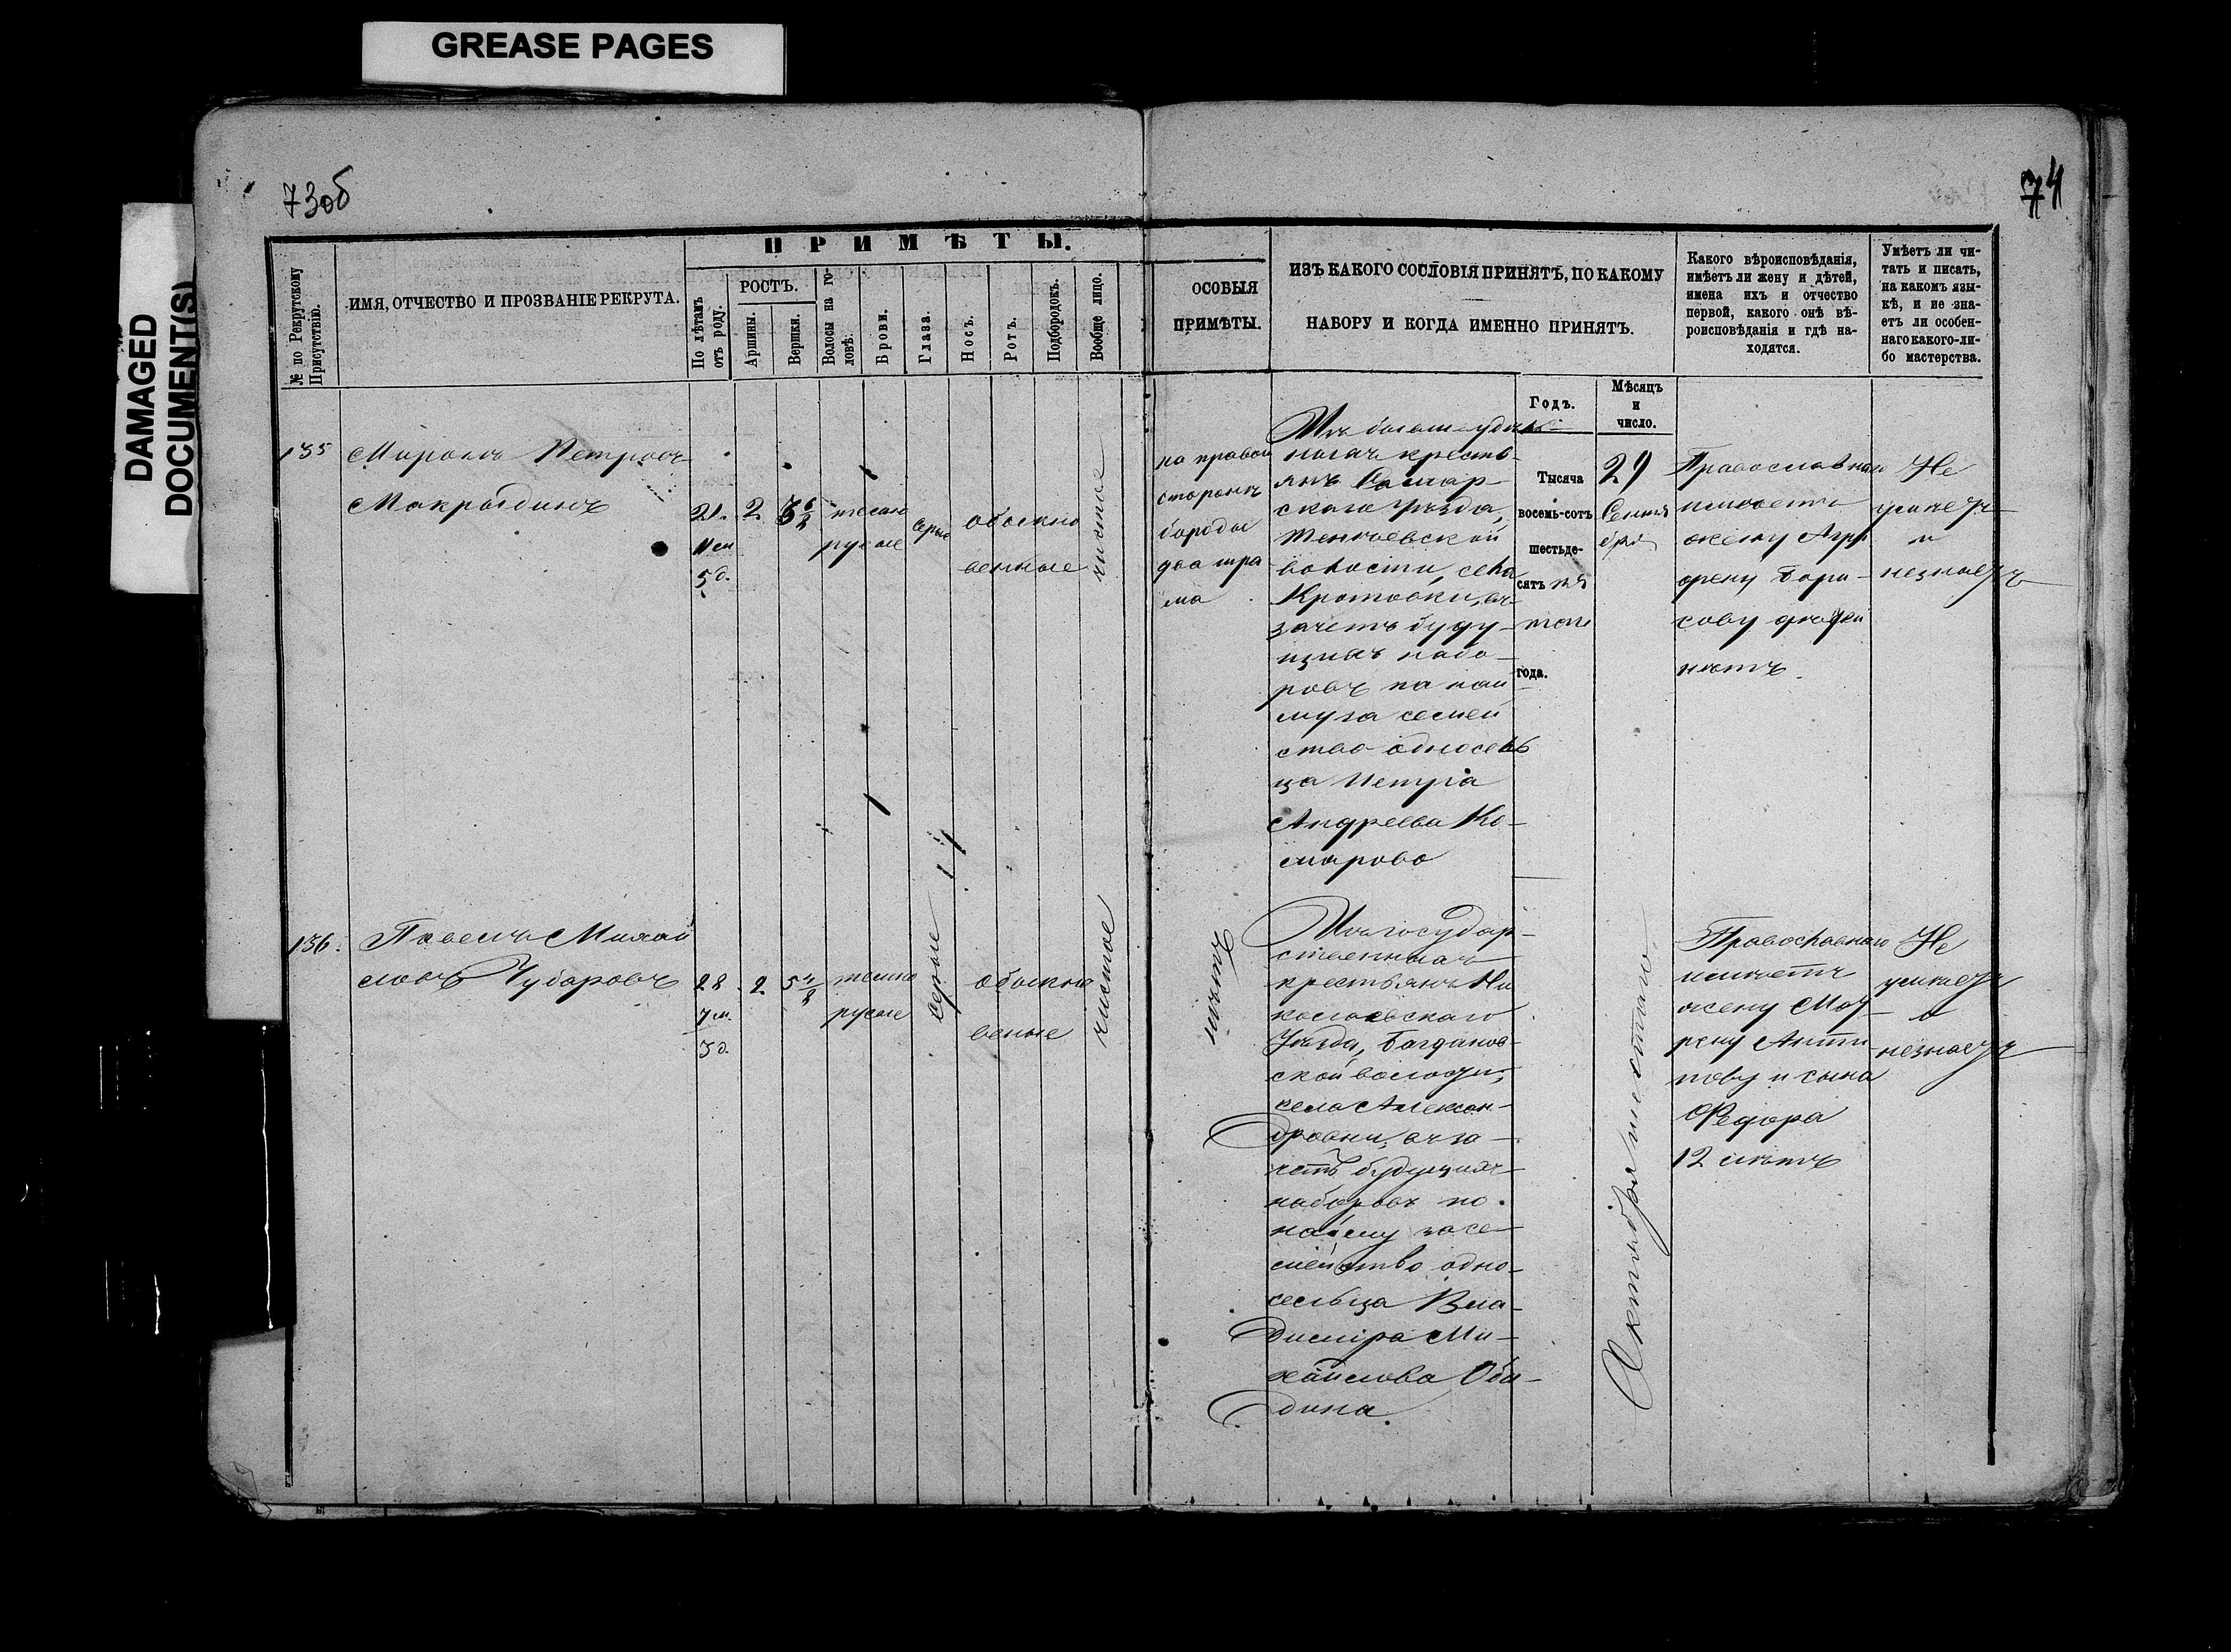 GREASE PAGES
DAMAGED
DOCUMENT(S)
73об
74
ПРИМѢТЫ.
№ по Рекрутскому
Присутствію.
ИМЯ, ОТЧЕСТВО И ПРОЗВАНІЕ РЕКРУТА.
По лѣтамъ
отъ роду.
РОСТЪ.
Аршины.
Вершки.
Волосы на го-
ловѣ.
Брови.
Глаза.
Носъ.
Ротъ.
Подбородокъ.
Вообще лицо.
ОСОБЫЯ
ПРИМѢТЫ.
ИЗЪ КАКОГО СОСЛОВІЯ ПРИНЯТЪ, ПО КАКОМУ
НАБОРУ И КОГДА ИМЕННО ПРИНЯТЪ.
Какого вѣроисповѣданія,
имѣетъ ли жену и дѣтей,
имена ихъ и отчество
первой, какого онѣ вѣ-
роисповѣданія и гдѣ на-
ходятся.
Умѣетъ ли чи-
тать и писать,
на какомъ язы-
кѣ, и не зна-
етъ ли особен-
наго какого-ли-
бо мастерства.
Годъ.
Мѣсяцъ
и
число.
135
Миронъ Петровъ
Макрыдинъ
21.
11 м
5 д.
2
6/8
темно
русые
серые
обыкно
венные
чистое
на правой
сторонѣ
бороды
два шра
ма
Изъ бывших удѣль-
ныхъ кресть-
янъ Самар-
скаго Уѣзда,
волости, села
Кротовки, въ
зачетъ буду-
щихъ набо-
ровъ по най
му за семей
ство односель
ца Петра
Андреева Ко-
марова
Тысяча
восемь-сотъ
шестьде-
сятъ
года.
29
Сентя
бря
Православнаго
имѣетъ
жену Агри
фену Бори-
сову дѣтей
нѣтъ.
Не
умѣетъ
и
незнаетъ
136.
Павелъ Михай
ловъ Чубаровъ
28
7 м.
3 д.
2
5 4/8
темно
русые
серые
обыкно
венные
чистое
нѣтъ
Изъ государ-
ственныхъ
крестьянъ Ни
колаевскаго
Уѣзда, Богданов-
ской волости,
села Алексан-
дровки, въ за-
четъ будущихъ
наборовъ по
найму за се-
мейство одно-
сельца Вла-
димира Ми-
хайлова Оби-
дина.
Октября шестаго
Православнаго
имѣетъ
жену Мат
рену Анти-
пову и сына
Федора
12 лѣтъ
Не
умѣетъ
и
незнаетъ